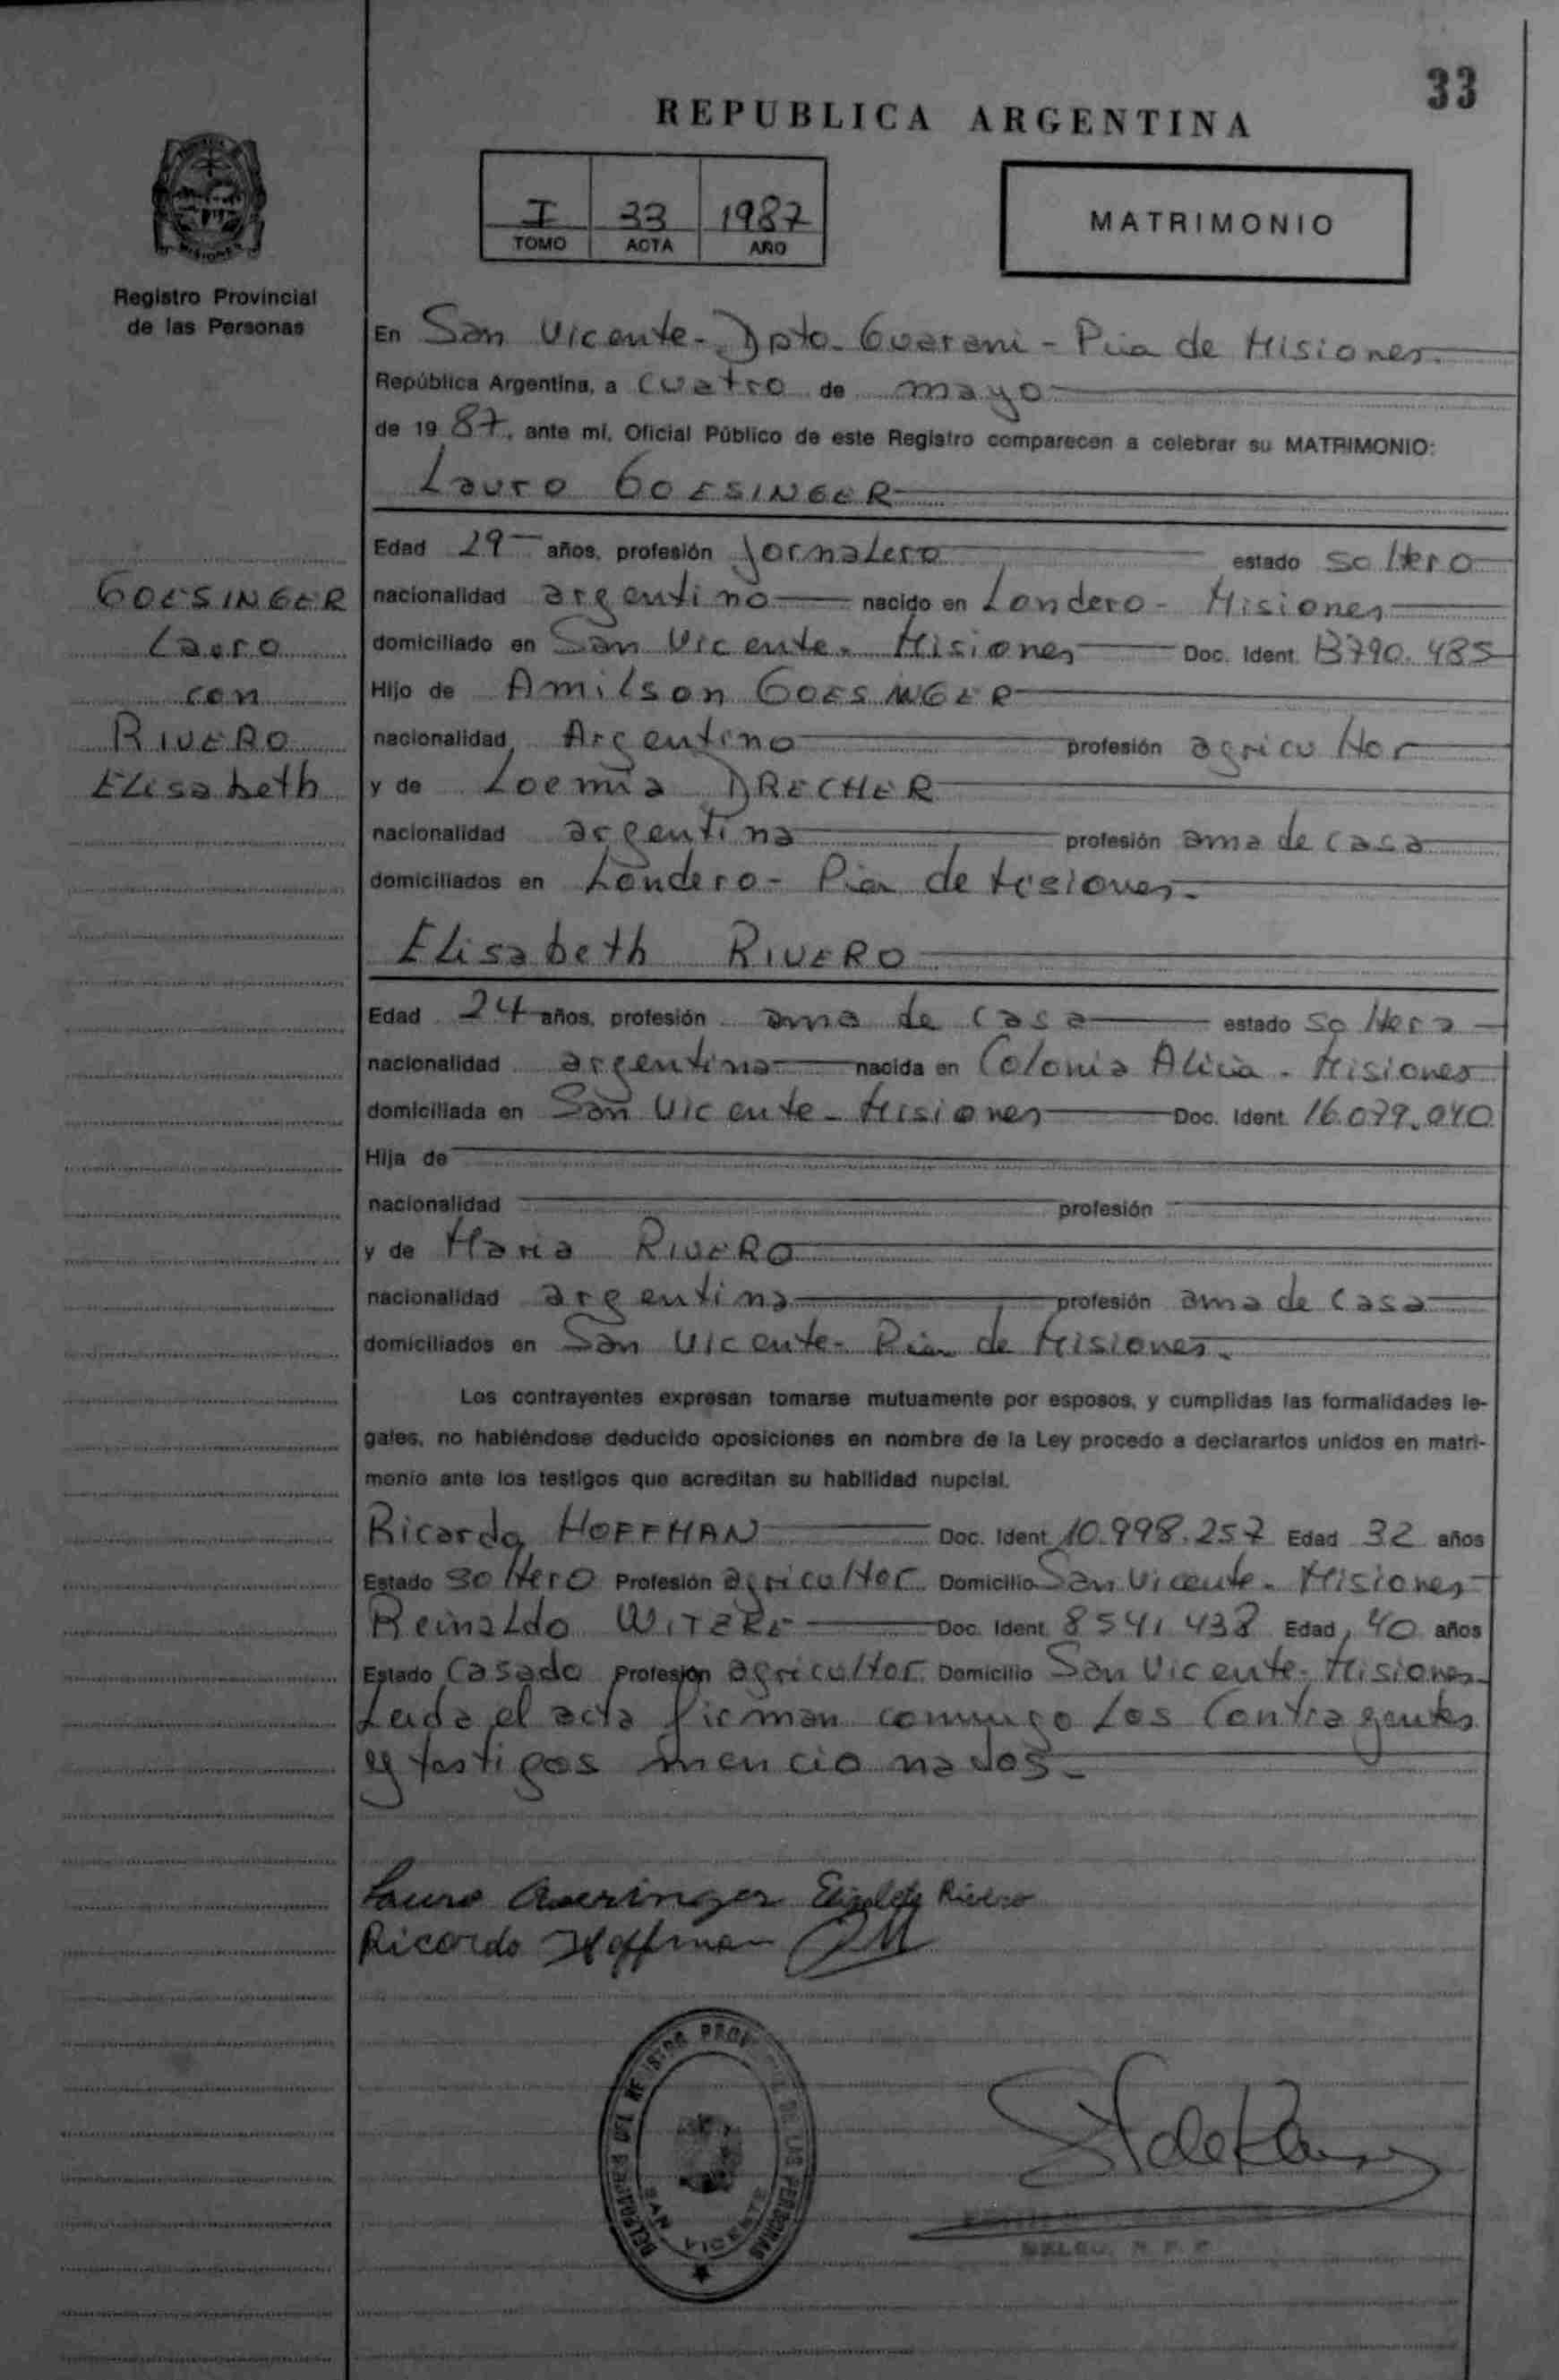 33
REPUBLICA ARGENTINA
I 33 1987
TOMO ACTA AÑO
MATRIMONIO
Registro Provincial
de las Personas
En San Vicente - Dpto. Guarani - Pcia de Misiones.
República Argentina, a cuatro de mayo
de 19 87, ante mí, Oficial Público de este Registro comparecen a celebrar su MATRIMONIO:
Lauro GOESINGER
Edad 29 años, profesión Jornalero estado soltero
GOESINGER
Lauro
con
RIVERO
Elisabeth
nacionalidad argentino nacido en Londero - Misiones
domiciliado en San Vicente - Misiones Doc. Ident. 13790.485
Hijo de Amilson GOESINGER
nacionalidad Argentino profesión agricultor
y de Loemia DRECHER
nacionalidad argentina profesión ama de casa
domiciliados en Londero - Pcia de Misiones.
Elisabeth RIVERO
Edad 24 años, profesión ama de casa estado soltera
nacionalidad argentina nacida en Colonia Alicia - Misiones
domiciliada en San Vicente - Misiones Doc. Ident. 16.079.040
Hija de
nacionalidad profesión
y de Maria RIVERO
nacionalidad argentina profesión ama de casa
domiciliados en San Vicente - Pcia de Misiones.
Los contrayentes expresan tomarse mutuamente por esposos, y cumplidas las formalidades le-
gales, no habiéndose deducido oposiciones en nombre de la Ley procedo a declararlos unidos en matri-
monio ante los testigos que acreditan su habilidad nupcial.
Ricardo HOFFMAN Doc. Ident. 10.998.257 Edad 32 años
Estado soltero Profesión agricultor Domicilio San Vicente - Misiones
Reinaldo WITZKE Doc. Ident. 8541.438 Edad 40 años
Estado Casado Profesión agricultor Domicilio San Vicente - Misiones
Leida el acta firman conmigo los Contrayentes
y testigos mencionados -
Lauro Elizabeth Rivero
Ricardo Hoffman
DELEGACION DEL REGISTRO PROVINCIAL DE LAS PERSONAS
SAN VICENTE